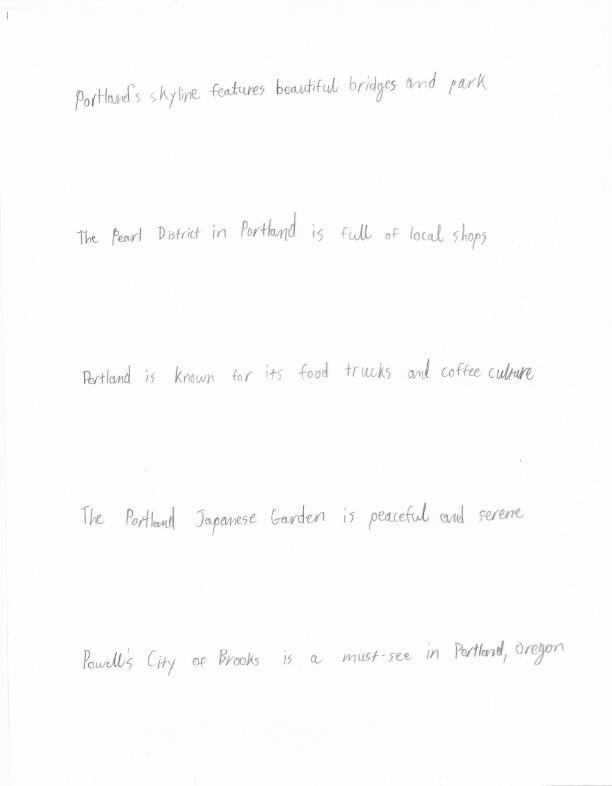 Portland's skyline features beautiful bridges and park
The Pearl District in Portland is full of local shops
Portland is known for its food trucks and coffee culture
The Portland Japanese Garden is peaceful and serene
Powell's City of Brooks is a must-see in Portland, Oregon